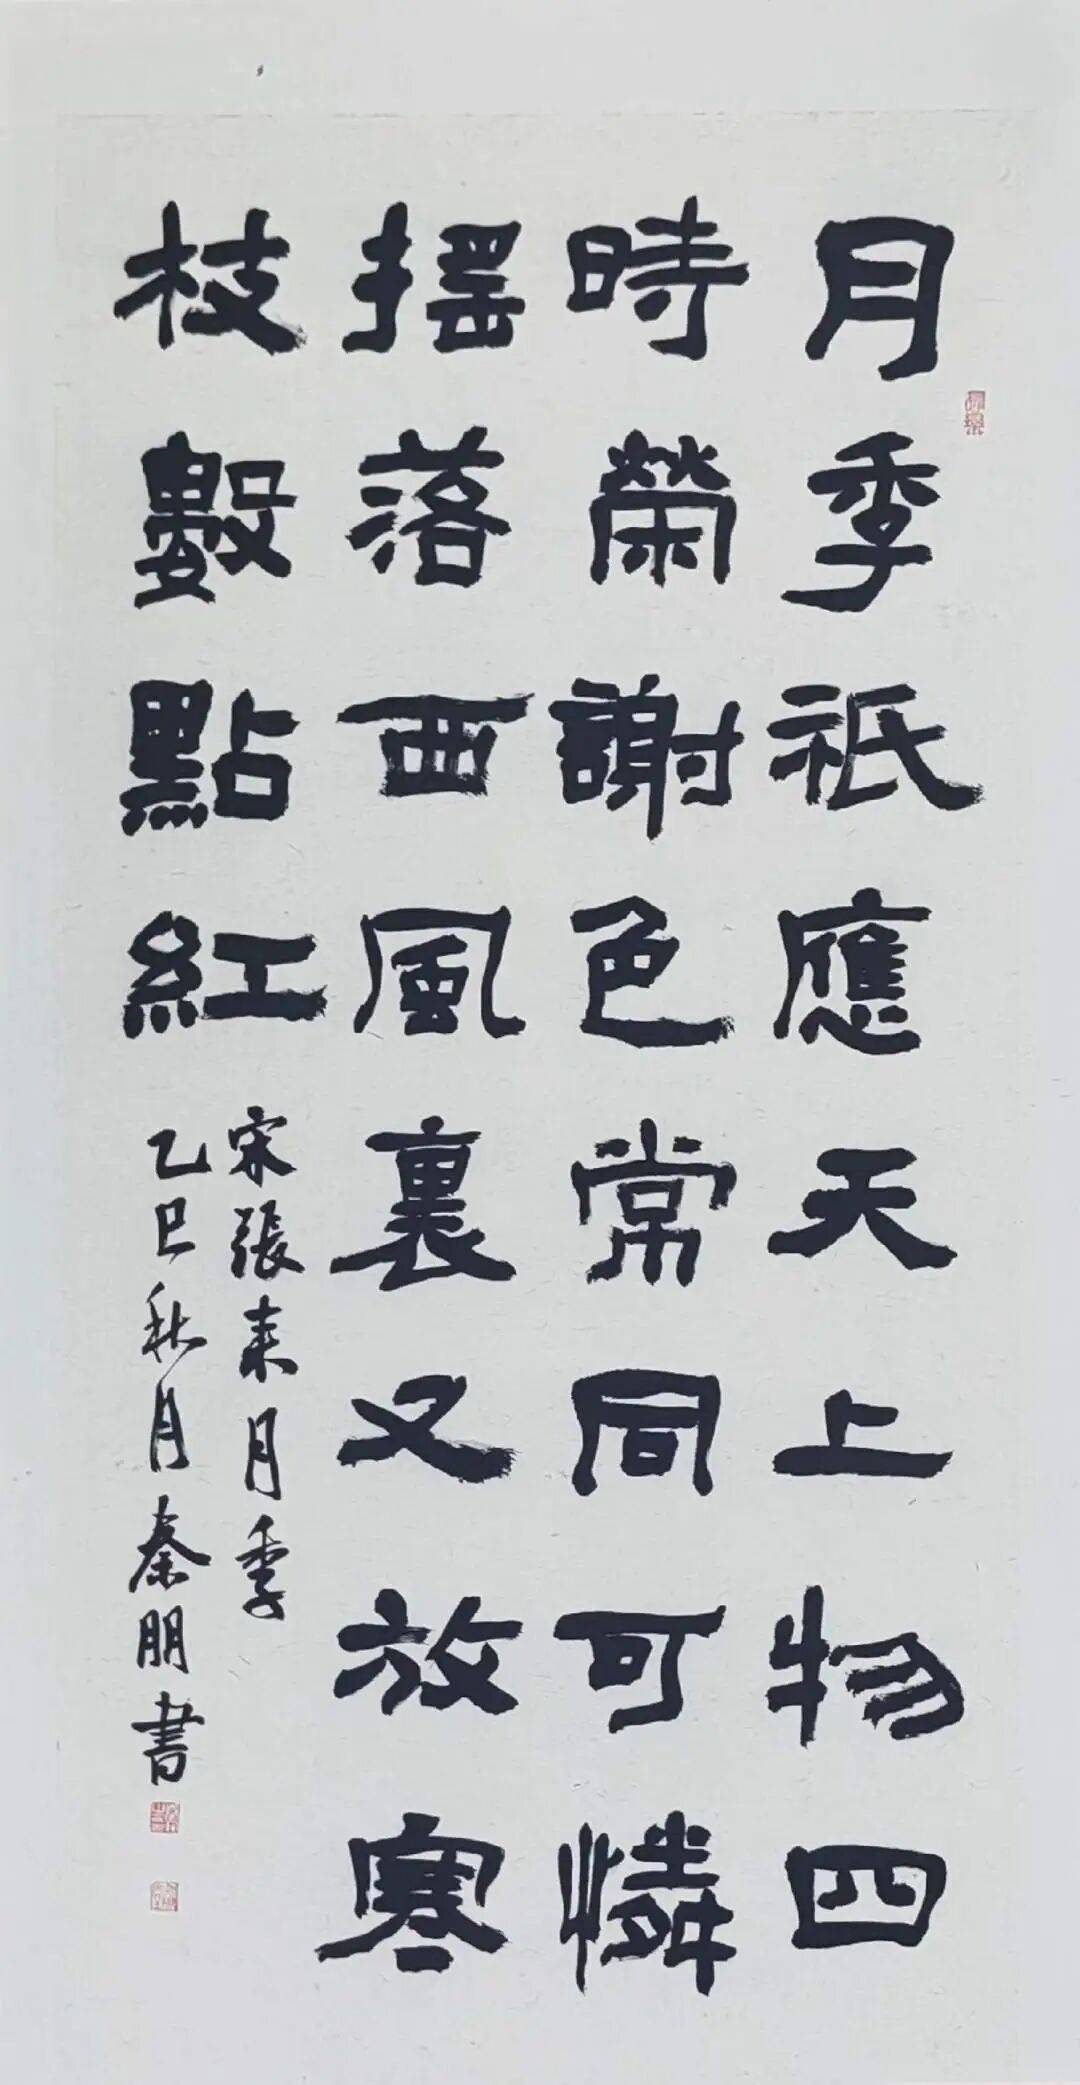 月季祇應天上物四
時榮謝色常同可憐
摇落西風裏又放寒
枝數點紅
宋張耒月季
乙巳秋月秦朋書